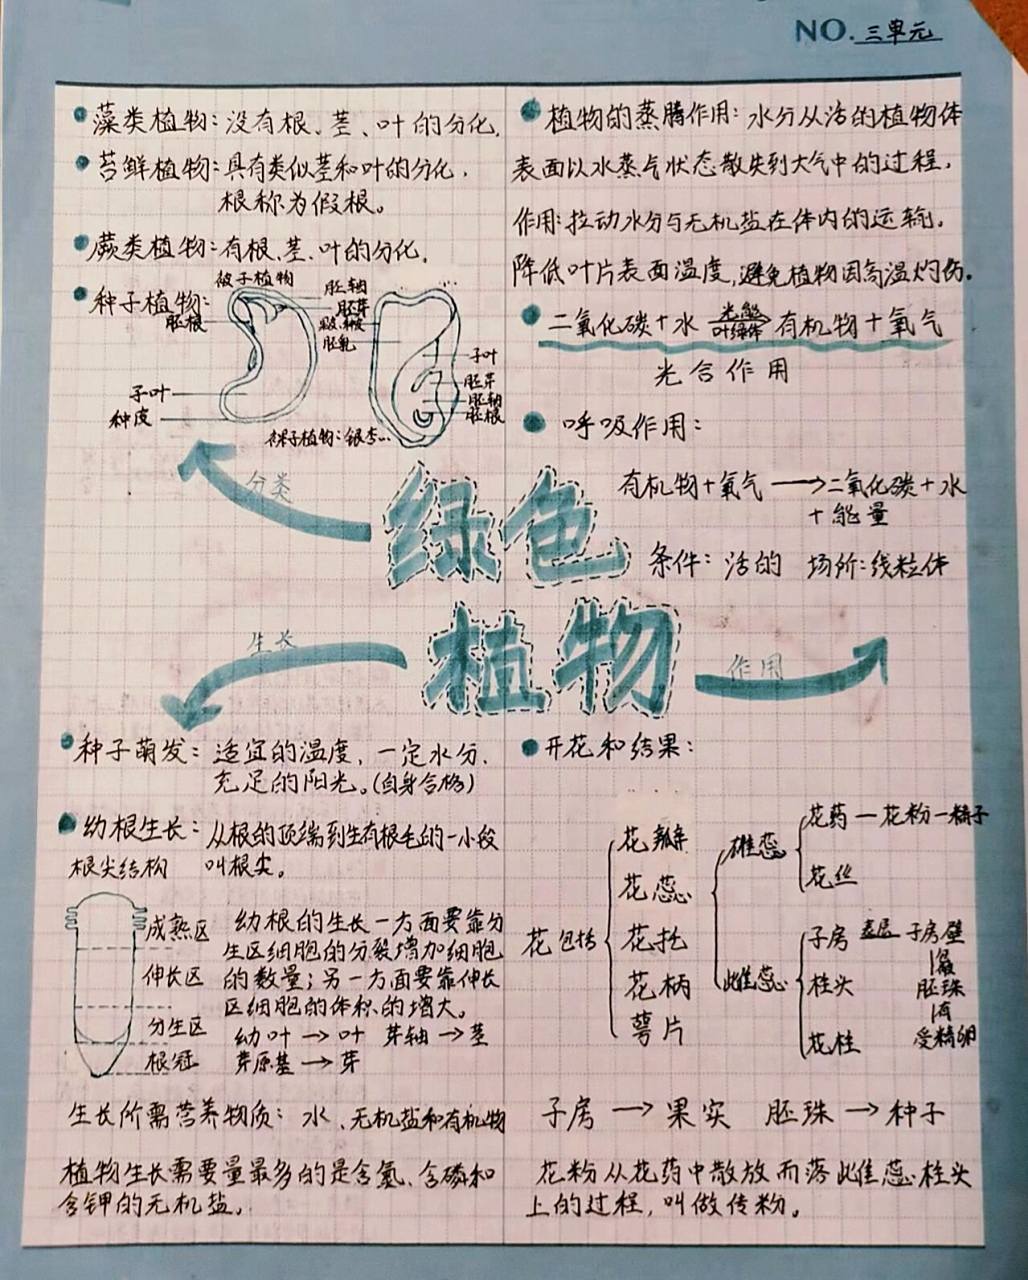 NO. 三单元
藻类植物:没有根、茎、叶的分化.
苔鲜植物:具有类似茎和叶的分化,
根称为假根。
蕨类植物:有根、茎、叶的分化.
种子植物:
被子植物
胚轴
胚芽
胚根
果皮、种皮
胚乳
子叶
胚芽
胚轴
胚根
子叶
种皮
裸子植物:银杏...
分类
植物的蒸腾作用:水分从活的植物体
表面以水蒸气状态散失到大气中的过程,
作用:拉动水分与无机盐在体内的运输,
降低叶片表面温度,避免植物因高温灼伤。
二氧化碳+水 光能 叶绿体 有机物+氧气
光合作用
呼吸作用:
有机物+氧气→二氧化碳+水
+能量
条件:活的 场所:线粒体
绿色
植物
生长
作用
种子萌发:适宜的温度,一定水分,
充足的阳光。(自身合格)
幼根生长:从根的顶端到生有根毛的一小段
根尖结构 叫根尖。
成熟区
伸长区
分生区
根冠
幼根的生长一方面要靠分
生区细胞的分裂增加细胞
的数量;另一方面要靠伸长
区细胞的体积的增大。
幼叶→叶 芽轴→茎
芽原基→芽
生长所需营养物质:水、无机盐和有机物
植物生长需要量最多的是含氮、含磷和
含钾的无机盐.
开花和结果:
花包括
花瓣
花蕊
花托
花柄
萼片
雄蕊
花药—花粉—精子
花丝
雌蕊
子房 子房壁
柱头
花柱
胚珠
受精卵
子房→果实 胚珠→种子
花粉从花药中散放而落雌蕊柱头
上的过程,叫做传粉。